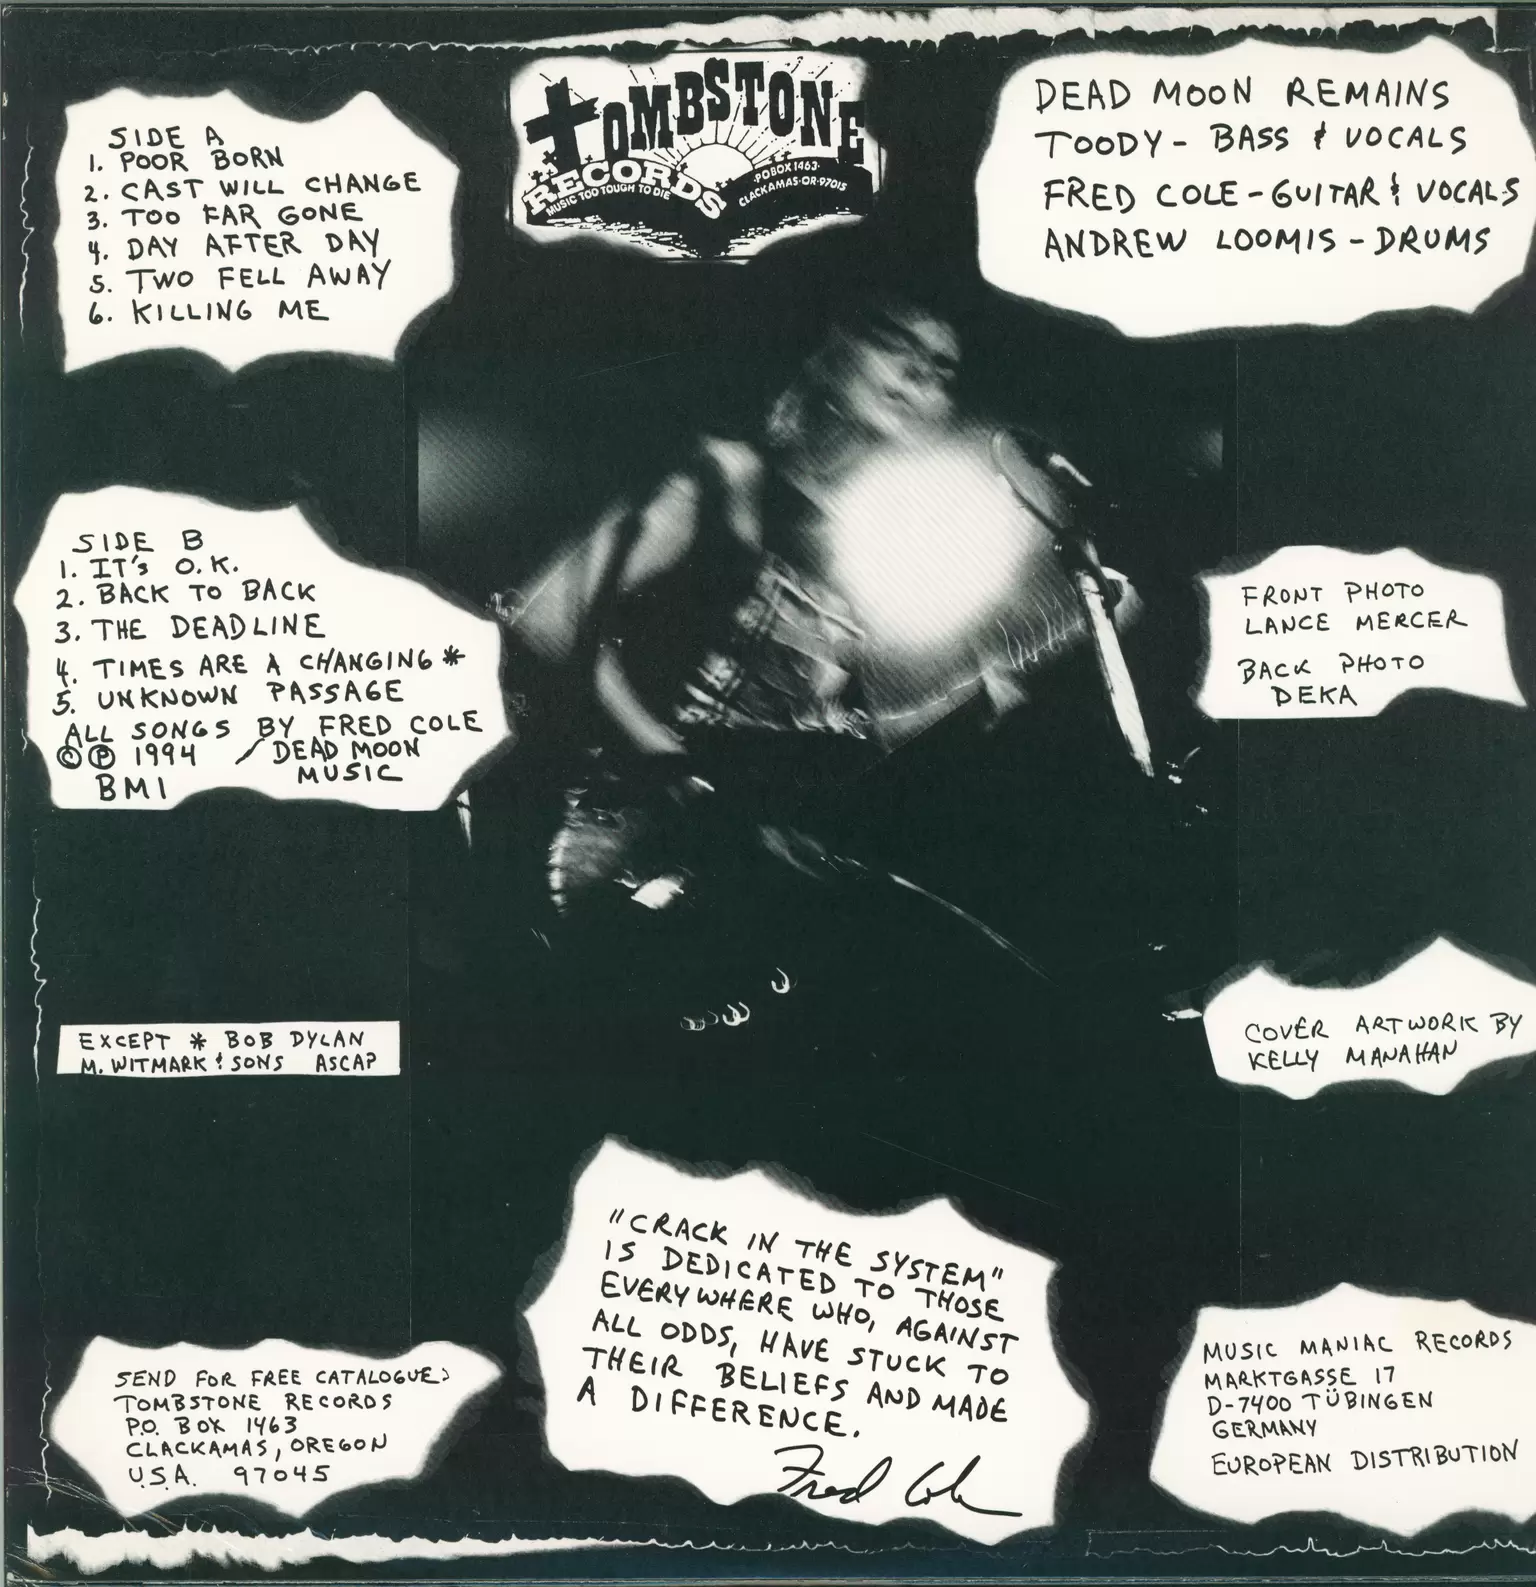 SIDE A
1. POOR BORN
2. CAST WILL CHANGE
3. TOO FAR GONE
4. DAY AFTER DAY
5. TWO FELL AWAY
6. KILLING ME
TOMBSTONE
RECORDS
MUSIC TOO TOUGH TO DIE
·POBOX 1463·
CLACKAMAS·OR·97015
DEAD MOON REMAINS
TOODY - BASS & VOCALS
FRED COLE - GUITAR & VOCALS
ANDREW LOOMIS - DRUMS
SIDE B
1. IT'S O.K.
2. BACK TO BACK
3. THE DEADLINE
4. TIMES ARE A CHANGING *
5. UNKNOWN PASSAGE
ALL SONGS BY FRED COLE
© ℗ 1994 / DEAD MOON
BMI MUSIC
FRONT PHOTO
LANCE MERCER
BACK PHOTO
DEKA
EXCEPT * BOB DYLAN
M. WITMARK & SONS ASCAP
COVER ARTWORK BY
KELLY MANAHAN
"CRACK IN THE SYSTEM"
IS DEDICATED TO THOSE
EVERYWHERE WHO, AGAINST
ALL ODDS, HAVE STUCK TO
THEIR BELIEFS AND MADE
A DIFFERENCE.
Fred Cole
SEND FOR FREE CATALOGUE:
TOMBSTONE RECORDS
P.O. BOX 1463
CLACKAMAS, OREGON
U.S.A. 97045
MUSIC MANIAC RECORDS
MARKTGASSE 17
D-7400 TÜBINGEN
GERMANY
EUROPEAN DISTRIBUTION